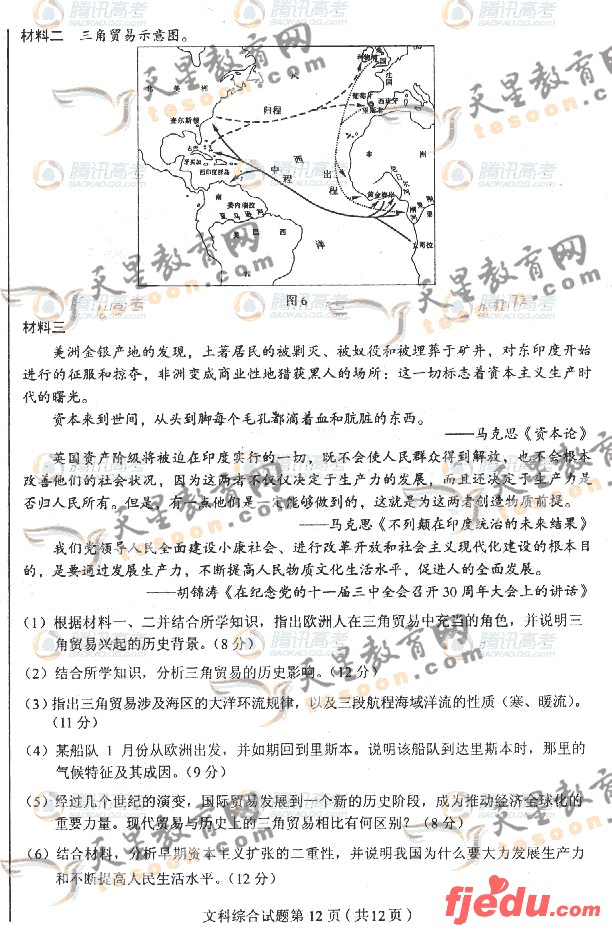 材料二 三角贸易示意图。
北 美 洲
大
英国
法国
归程
葡萄牙
西班牙
里斯本
查尔斯顿
古巴
牙买加
西印度群岛
西
中程
出程
非 洲
黄金海岸
刚果
南
委内瑞拉
亚马孙河
美 巴西
洋
图6
材料三
美洲金银产地的发现，土著居民的被剿灭、被奴役和被埋葬于矿井，对东印度开始
进行的征服和掠夺，非洲变成商业性地猎获黑人的场所：这一切标志着资本主义生产时
代的曙光。
资本来到世间，从头到脚每个毛孔都滴着血和肮脏的东西。
——马克思《资本论》
英国资产阶级将被迫在印度实行的一切，既不会使人民群众得到解放，也不会根本
改善他们的社会状况，因为这两者不仅仅决定于生产力的发展，而且还决定于生产力是
否归人民所有。但是，有一点他们是一定能够做到的，这就是为这两者创造物质前提。
——马克思《不列颠在印度统治的未来结果》
我们党领导人民全面建设小康社会、进行改革开放和社会主义现代化建设的根本目
的，是要通过发展生产力，不断提高人民物质文化生活水平，促进人的全面发展。
——胡锦涛《在纪念党的十一届三中全会召开30周年大会上的讲话》
（1）根据材料一、二并结合所学知识，指出欧洲人在三角贸易中充当的角色，并说明三
角贸易兴起的历史背景。（8分）
（2）结合所学知识，分析三角贸易的历史影响。（12分）
（3）指出三角贸易涉及海区的大洋环流规律，以及三段航程海域洋流的性质（寒、暖流）。
（11分）
（4）某船队1月份从欧洲出发，并如期回到里斯本。说明该船队到达里斯本时，那里的
气候特征及其成因。（9分）
（5）经过几个世纪的演变，国际贸易发展到一个新的历史阶段，成为推动经济全球化的
重要力量。现代贸易与历史上的三角贸易相比有何区别？（8分）
（6）结合材料，分析早期资本主义扩张的二重性，并说明我国为什么要大力发展生产力
和不断提高人民生活水平。（12分）
文科综合试题第12页（共12页）
天星教育网
tesoon.com
腾讯高考
BAOKAO.QQ.COM
fjedu.com